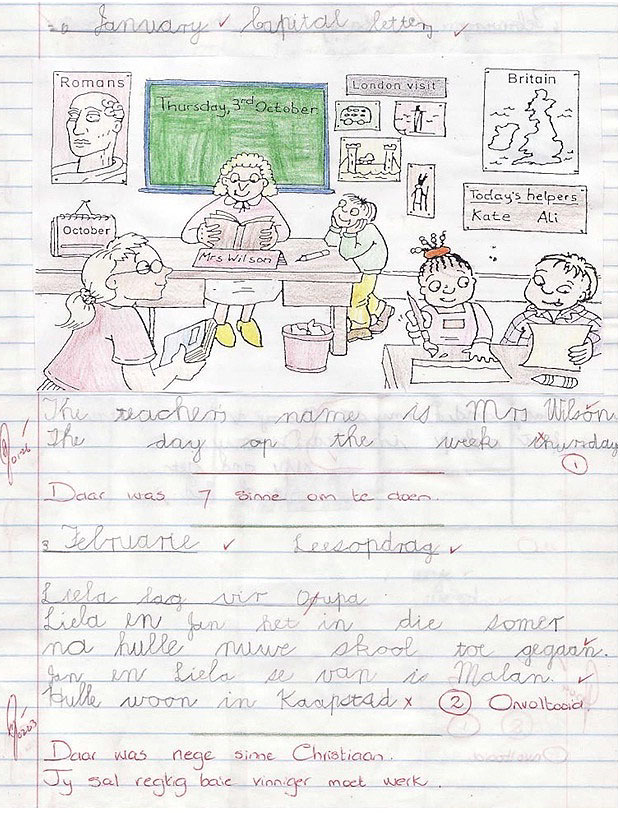 January Capital letters
Romans
Thursday, 3rd October
London visit
Britain
Today's helpers
Kate Ali
October
Mrs Wilson
The teachers name is Mrs Wilson
The day op the week thursday
1
Daar was 7 sinne om te doen.
3 Februarie Leesopdrag
Liela lag vir Oupa
Liela en Jan het in die somer
na hulle nuwe skool toe gegaan.
Jan en Liela se van is Malan.
Hulle woon in Kaapstad x 2 Onvoltooid.
Daar was nege sinne Christiaan.
Jy sal regtig baie vinniger moet werk.